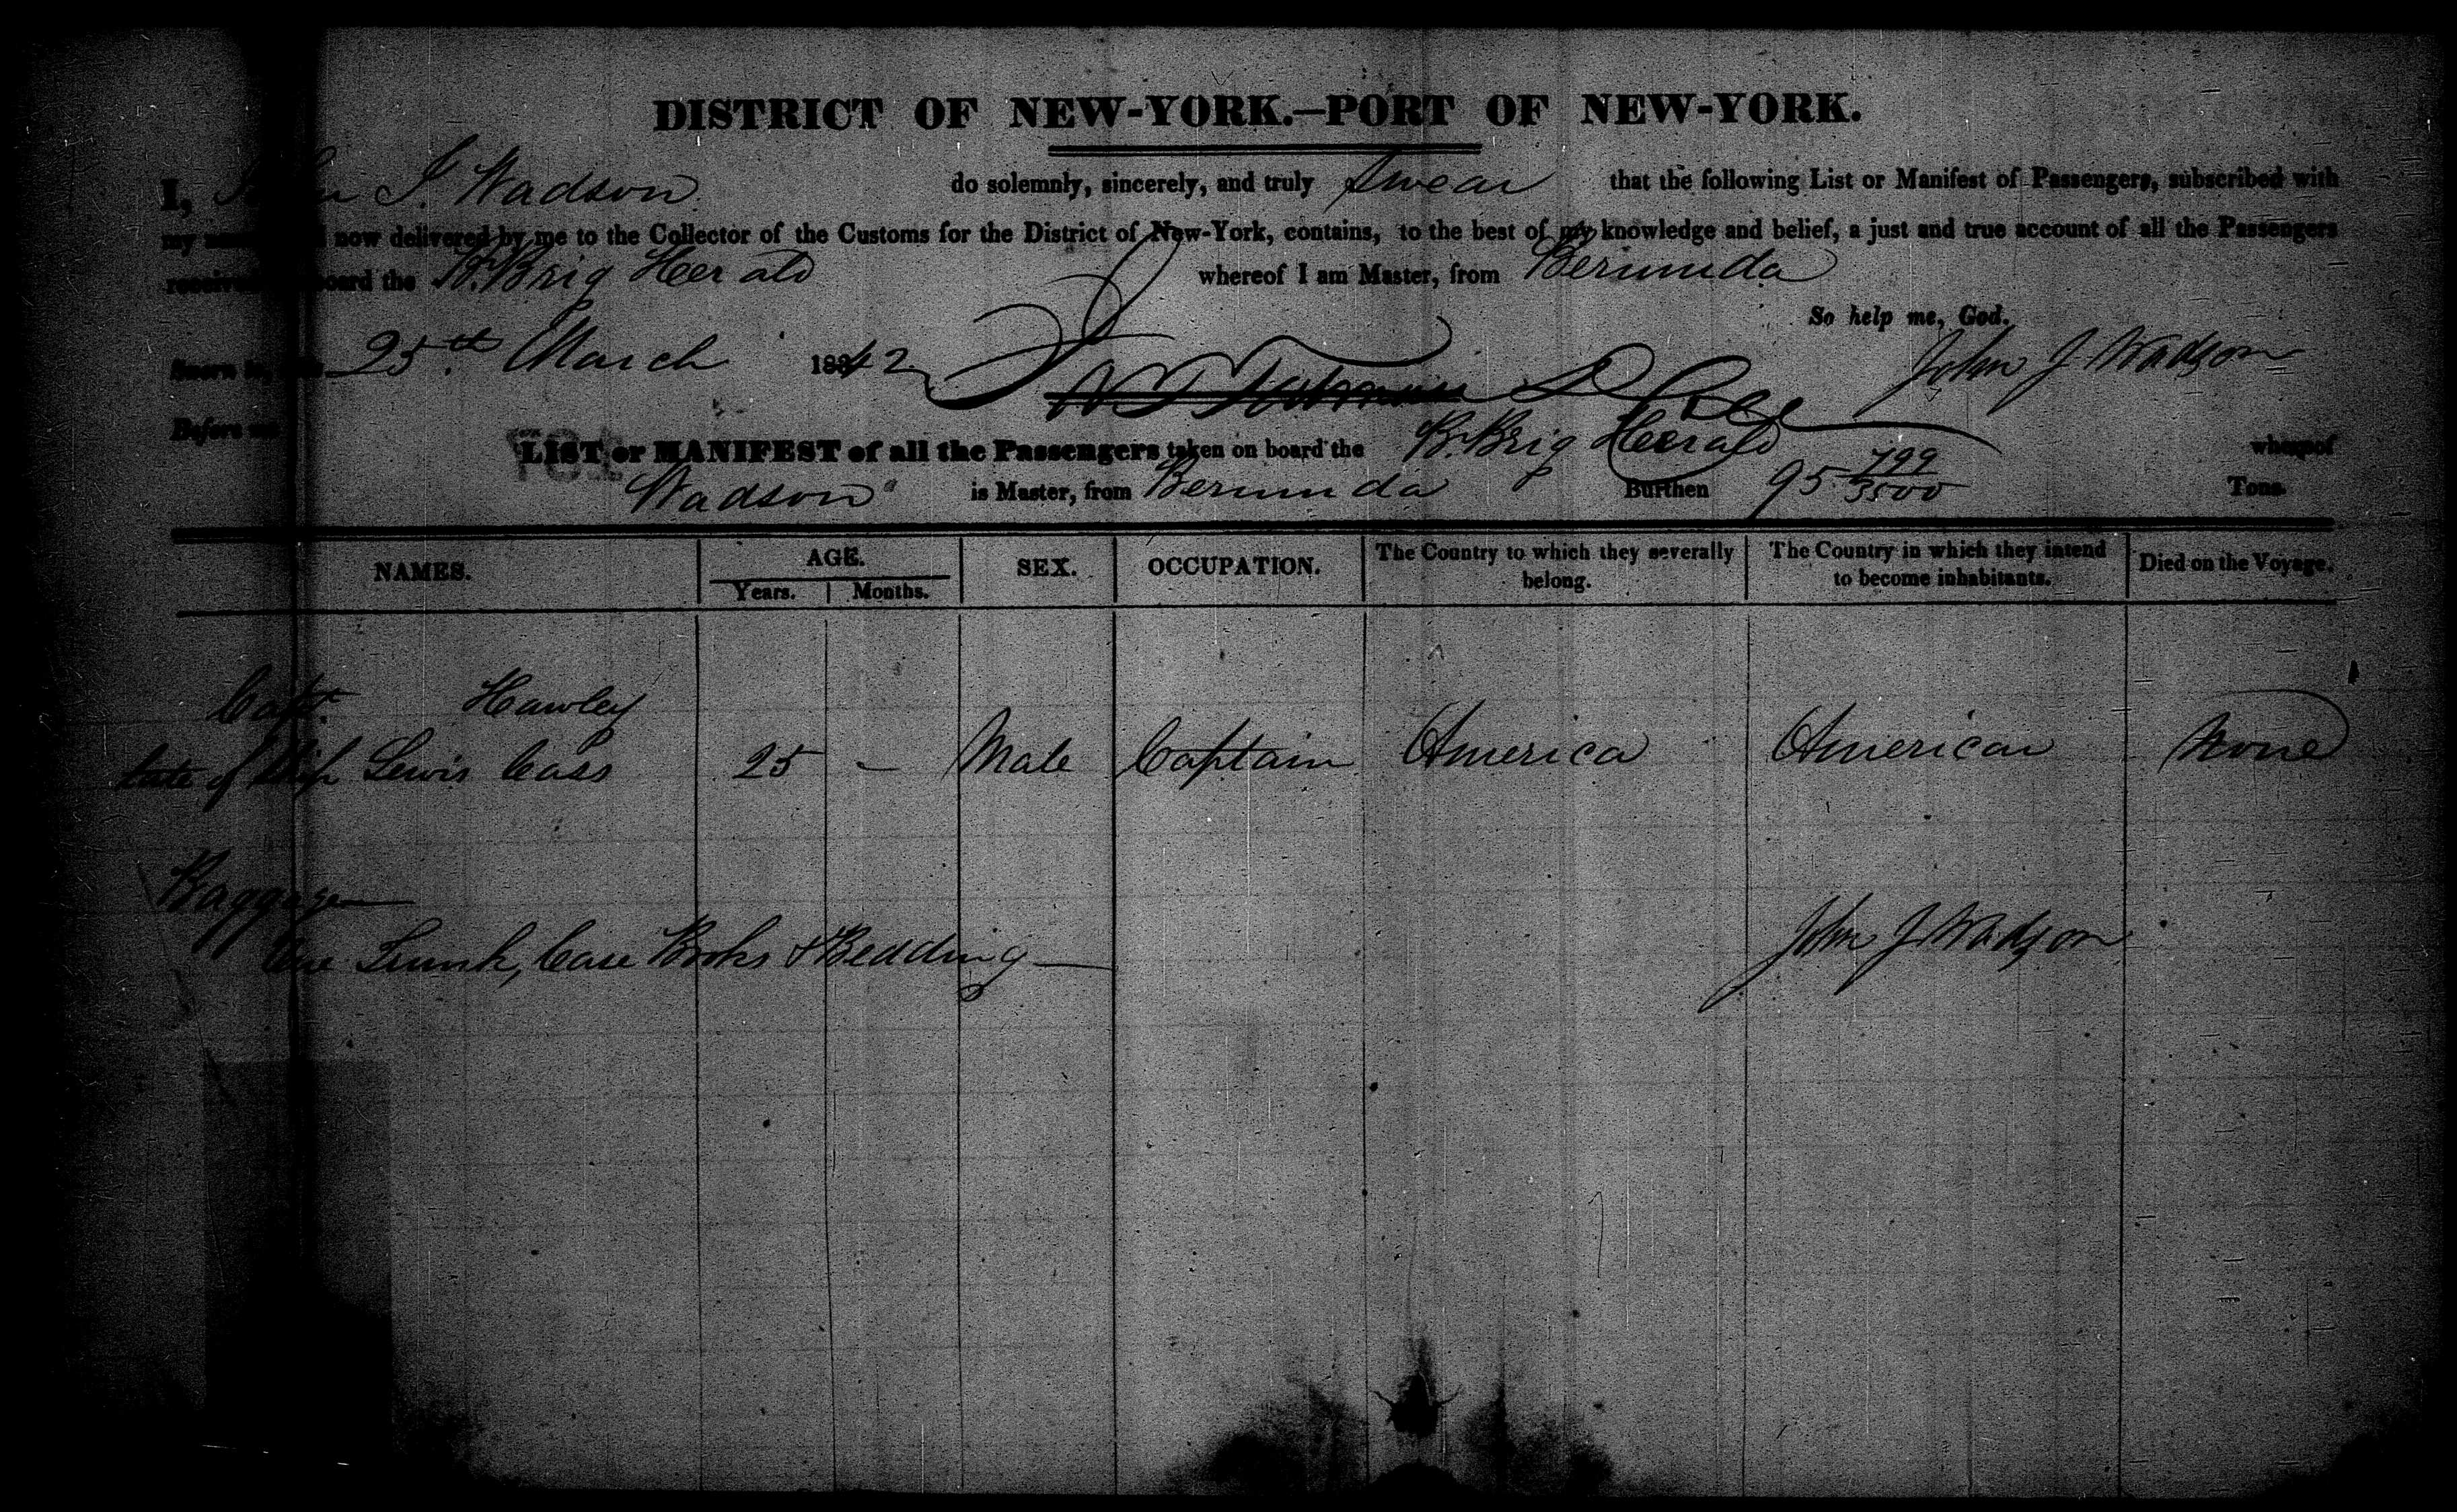 DISTRICT OF NEW-YORK.—PORT OF NEW-YORK.
I, John J. Wadson do solemnly, sincerely, and truly swear that the following List or Manifest of Passengers, subscribed with
my now delivered by me to the Collector of the Customs for the District of New-York, contains, to the best of my knowledge and belief, a just and true account of all the Passengers
received board the Br. Brig Herald whereof I am Master, from Bermuda
So help me, God.
Sworn to, 25th March 1842 John J Wadson
Before me
LIST or MANIFEST of all the Passengers taken on board the Br. Brig Herald whereof
Wadson is Master, from Bermuda Burthen 95 799/3500 Tons.
NAMES. AGE. SEX. OCCUPATION. The Country to which they severally belong. The Country in which they intend to become inhabitants. Died on the Voyage.
Years. Months.
Capt. Hawley
late of Ship Lewis Cass 25 – Male Captain America American None
Baggage
One Trunk, Case Books & Bedding
John J Wadson